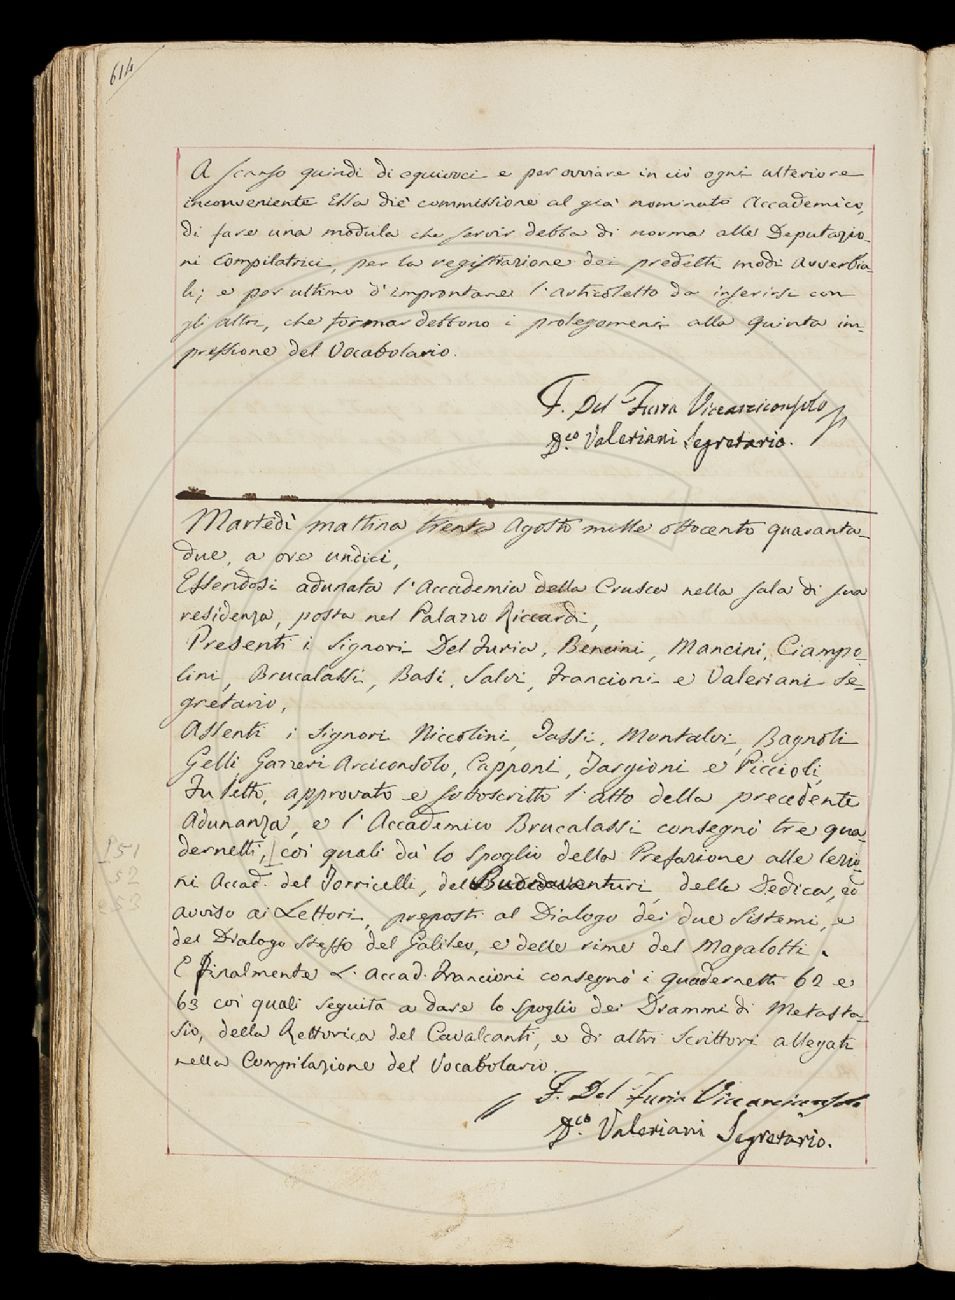 614
A scanso quindi di equivoci e per ovviare in ciò ogni ulteriore
inconveniente Essa diè commissione al già nominato Accademico,
di fare una modula che servir debba di norma alle Deputazio-
ni Compilatrici, per la registrazione dei predetti modi avverbia-
li; e per ultimo d'improntare l'articoletto da inserirsi con
gli altri, che formar debbono i prolegomeni alla quinta im-
pressione del Vocabolario.
F. Del Furia Vicearciconsolo
Dco. Valeriani Segretario.
Martedì mattina trenta Agosto mille ottocento quaranta-
due, a ore undici,
Essendosi adunata l'Accademia della Crusca nella sala di sua
residenza, posta nel Palazzo Riccardi,
Presenti i Signori Del Furia, Bencini, Mancini, Ciampo-
lini, Brucalassi, Basi, Salvi, Francioni e Valeriani Se-
gretario,
Assenti i Signori Niccolini, Tassi, Montalvi, Bagnoli
Gelli Gazzeri Arciconsolo, Capponi, Targioni e Piccioli,
Fu letto, approvato e sottoscritto l'atto della precedente
Adunanza, e l'Accademico Brucalassi consegnò tre qua-
dernetti, coi quali dà lo spoglio della Prefazione alle lezio-
151
ni Accad. del Torricelli, del Buonaventuri, della Dedica, ed
52
avviso ai Lettori, preposti al Dialogo dei due Sistemi, e
e 53
del Dialogo stesso del Galileo, e delle rime del Magalotti.
E finalmente L'Accad. Francioni consegnò i quadernetti 62 e
63 coi quali seguita a dare lo spoglio dei Drammi di Metasta-
sio, della Rettorica del Cavalcanti, e di altri Scrittori allegati
nella Compilazione del Vocabolario.
F. Del Furia Vicearciconsolo
Dco. Valeriani Segretario.